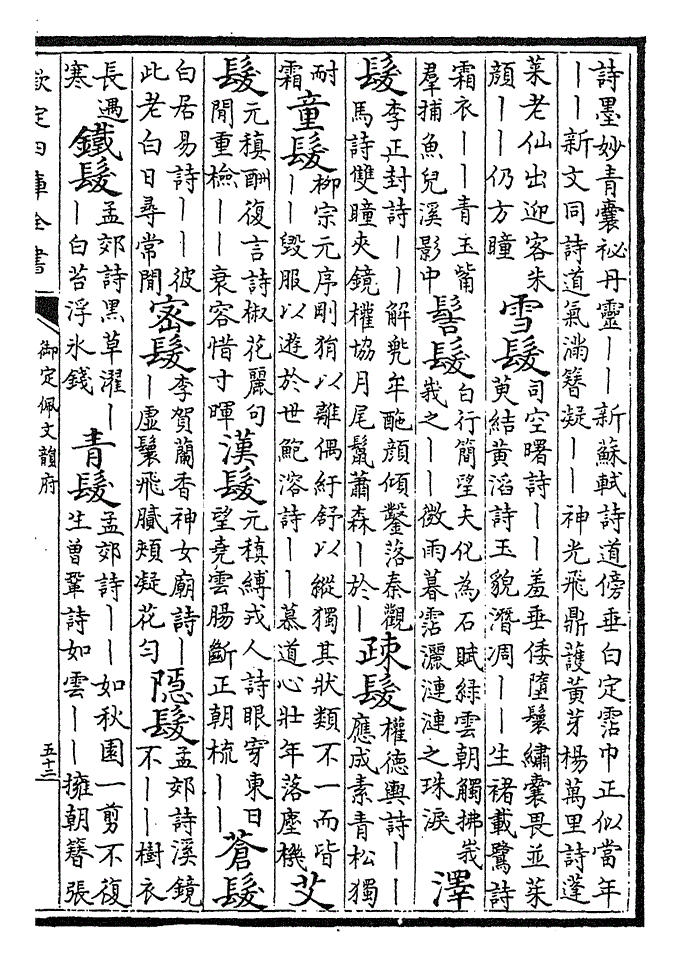 詩墨妙青囊祕丹靈丨丨新蘇軾詩道傍垂白定霑巾正似當年
丨丨新文同詩道氣滿簪凝丨丨神光飛鼎䕶黃芽楊萬里詩蓬
萊老仙出迎客朱
顔丨丨仍方瞳
雪髮
司空曙詩丨丨羞垂倭墮鬟繡囊畏並茱
萸結黃滔詩玉貌潛凋丨丨生褚載鷺詩
霜衣丨丨青玉觜
羣捕魚兒溪影中
髻髮
白行簡望夫化為石賦綠雲朝觸拂峩
峩之丨丨微雨暮霑灑漣漣之珠淚
澤
髮
李正封詩丨丨解兜牟酡顔傾鑿落秦觀
馬詩雙瞳夾鏡權協月尾鬛蕭森丨於丨
疎髮
權德輿詩丨丨
應成素青松獨
耐
霜
童髮
柳宗元序剛狷以離偶紆舒以縱獨其狀類不一而皆
丨丨毀服以遊於世鮑溶詩丨丨慕道心壯年落塵機
艾
髮
元稹酬復言詩椒花麗句
閒重檢丨丨衰容惜寸暉
漢髮
元稹縛戎人詩眼穿東日
望堯雲腸斷正朝梳丨丨
蒼髮
白居易詩丨丨彼
此老白日尋常閒
密髮
李賀蘭香神女廟詩丨
丨虛鬟飛膩頰凝花勻
隱髮
孟郊詩溪鏡
不丨丨樹衣
長遇
寒
鐵髮
孟郊詩黑草濯丨
丨白苔浮水錢
青髮
孟郊詩丨丨如秋園一剪不復
生曾鞏詩如雲丨丨擁朝簪張
欽定四庫全書
御定佩文韻府
五十三